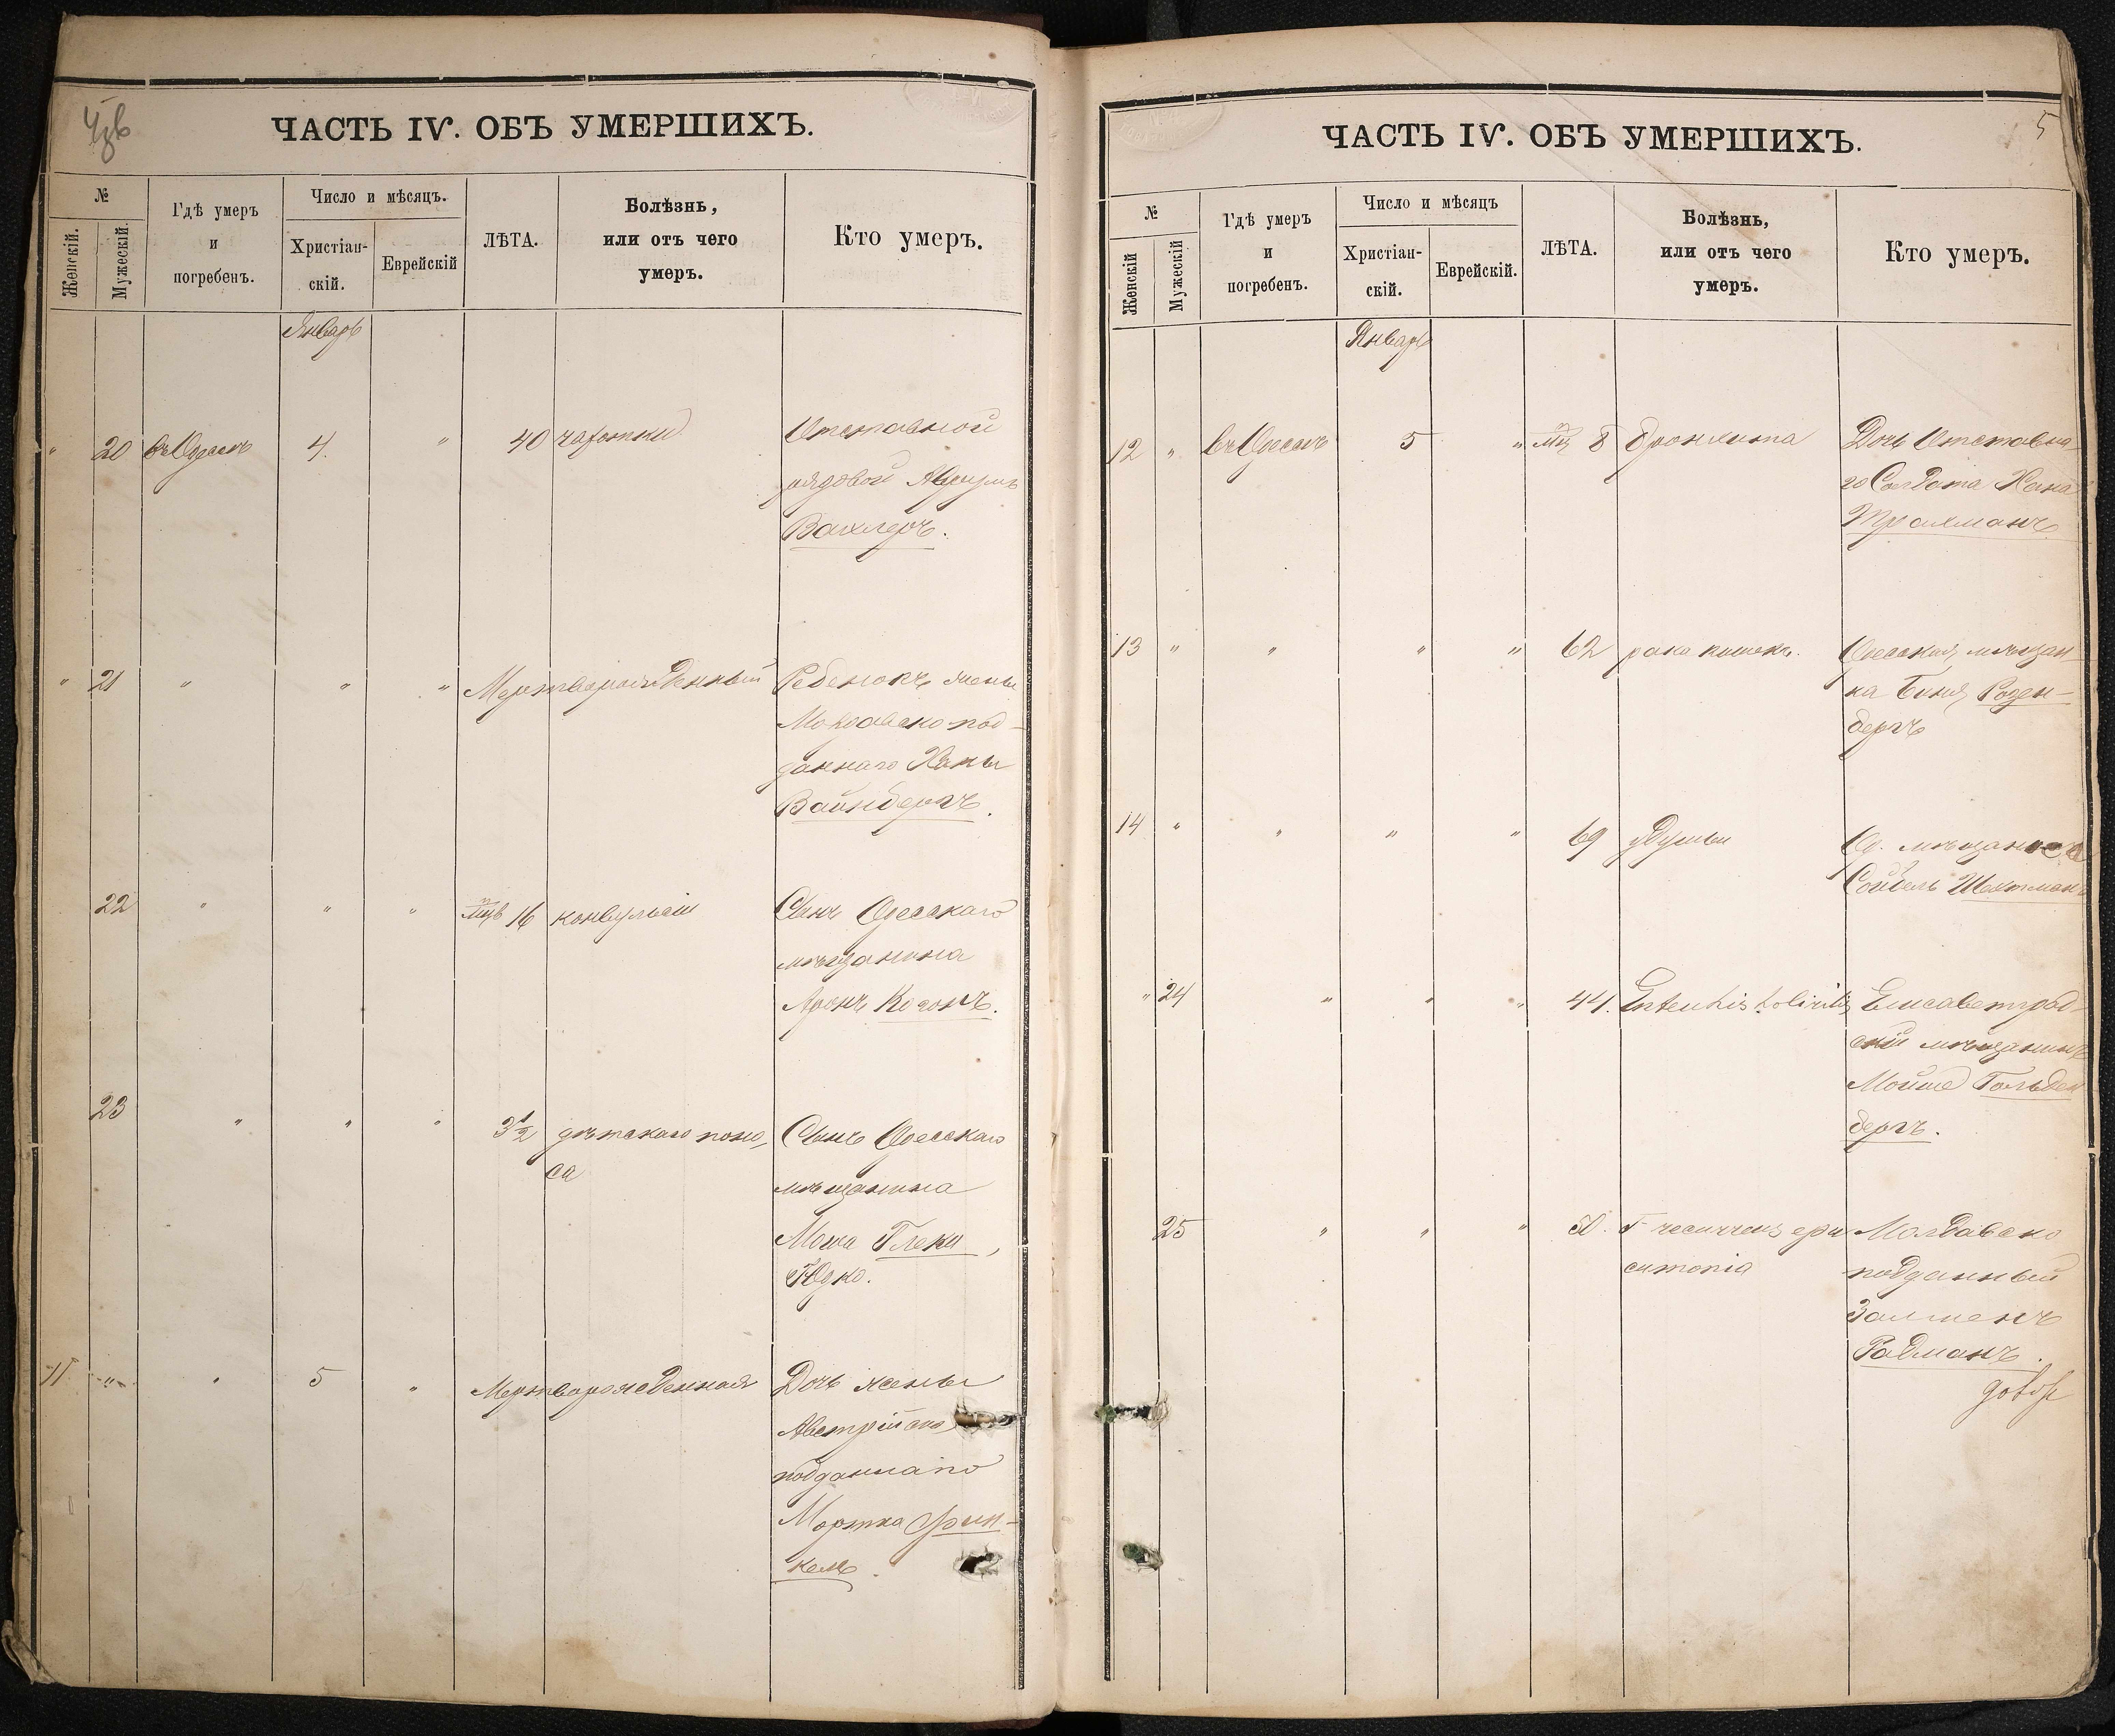 ЧАСТЬ IV. ОБЪ УМЕРШИХЪ.
№
Женскій.
Мужескій.
Гдѣ умеръ
и
погребенъ.
Число и мѣсяцъ.
Христіан-
скій.
Еврейскій
ЛѢТА.
Болѣзнь,
или отъ чего
умеръ.
Кто умеръ.
Январь
" 20 въ Одессѣ 4. " 40 чахотки Отставной
рядовой Аврумъ
Вахлеръ.
" 21 " " " Мертворожденный Ребенокъ жены
Молдавско под-
даннаго Ханы
Вайнбергъ.
22 " " " мцв 16 конвульсіи Сынъ Одесскаго
мѣщанина
Аронъ Когонъ.
23 " " " 3½ дѣтскаго поно-
са
Сынъ Одесскаго
мѣщанина
Моша Глеки,
Юдко.
11 " " 5 " Мертворожденная Дочь жены
Австрійско
подданнаго
Мортка Фин-
кель.
ЧАСТЬ IV. ОБЪ УМЕРШИХЪ.
5
№
Женскій
Мужескій
Гдѣ умеръ
и
погребенъ.
Число и мѣсяцъ
Христіан-
скій.
Еврейскій.
ЛѢТА.
Болѣзнь,
или отъ чего
умеръ.
Кто умеръ.
Январь
12 " въ Одессѣ 5 " мц 8 бронхита Дочь Отставна-
го Солдата Хана
Трахманъ
13 " " " " 62 рака кишекъ. Одесская мѣщан-
ка Биня Розен-
бергъ
14 " " " " 69 удушьи Од. мѣщанка
Сойбель Шехтманъ
" 24 " " " 44. Елисаветград-
скій мѣщанинъ
Мойше Гольден
бергъ.
25 " " " 50. Молдавско
подданный
Залменъ
Радманъ.